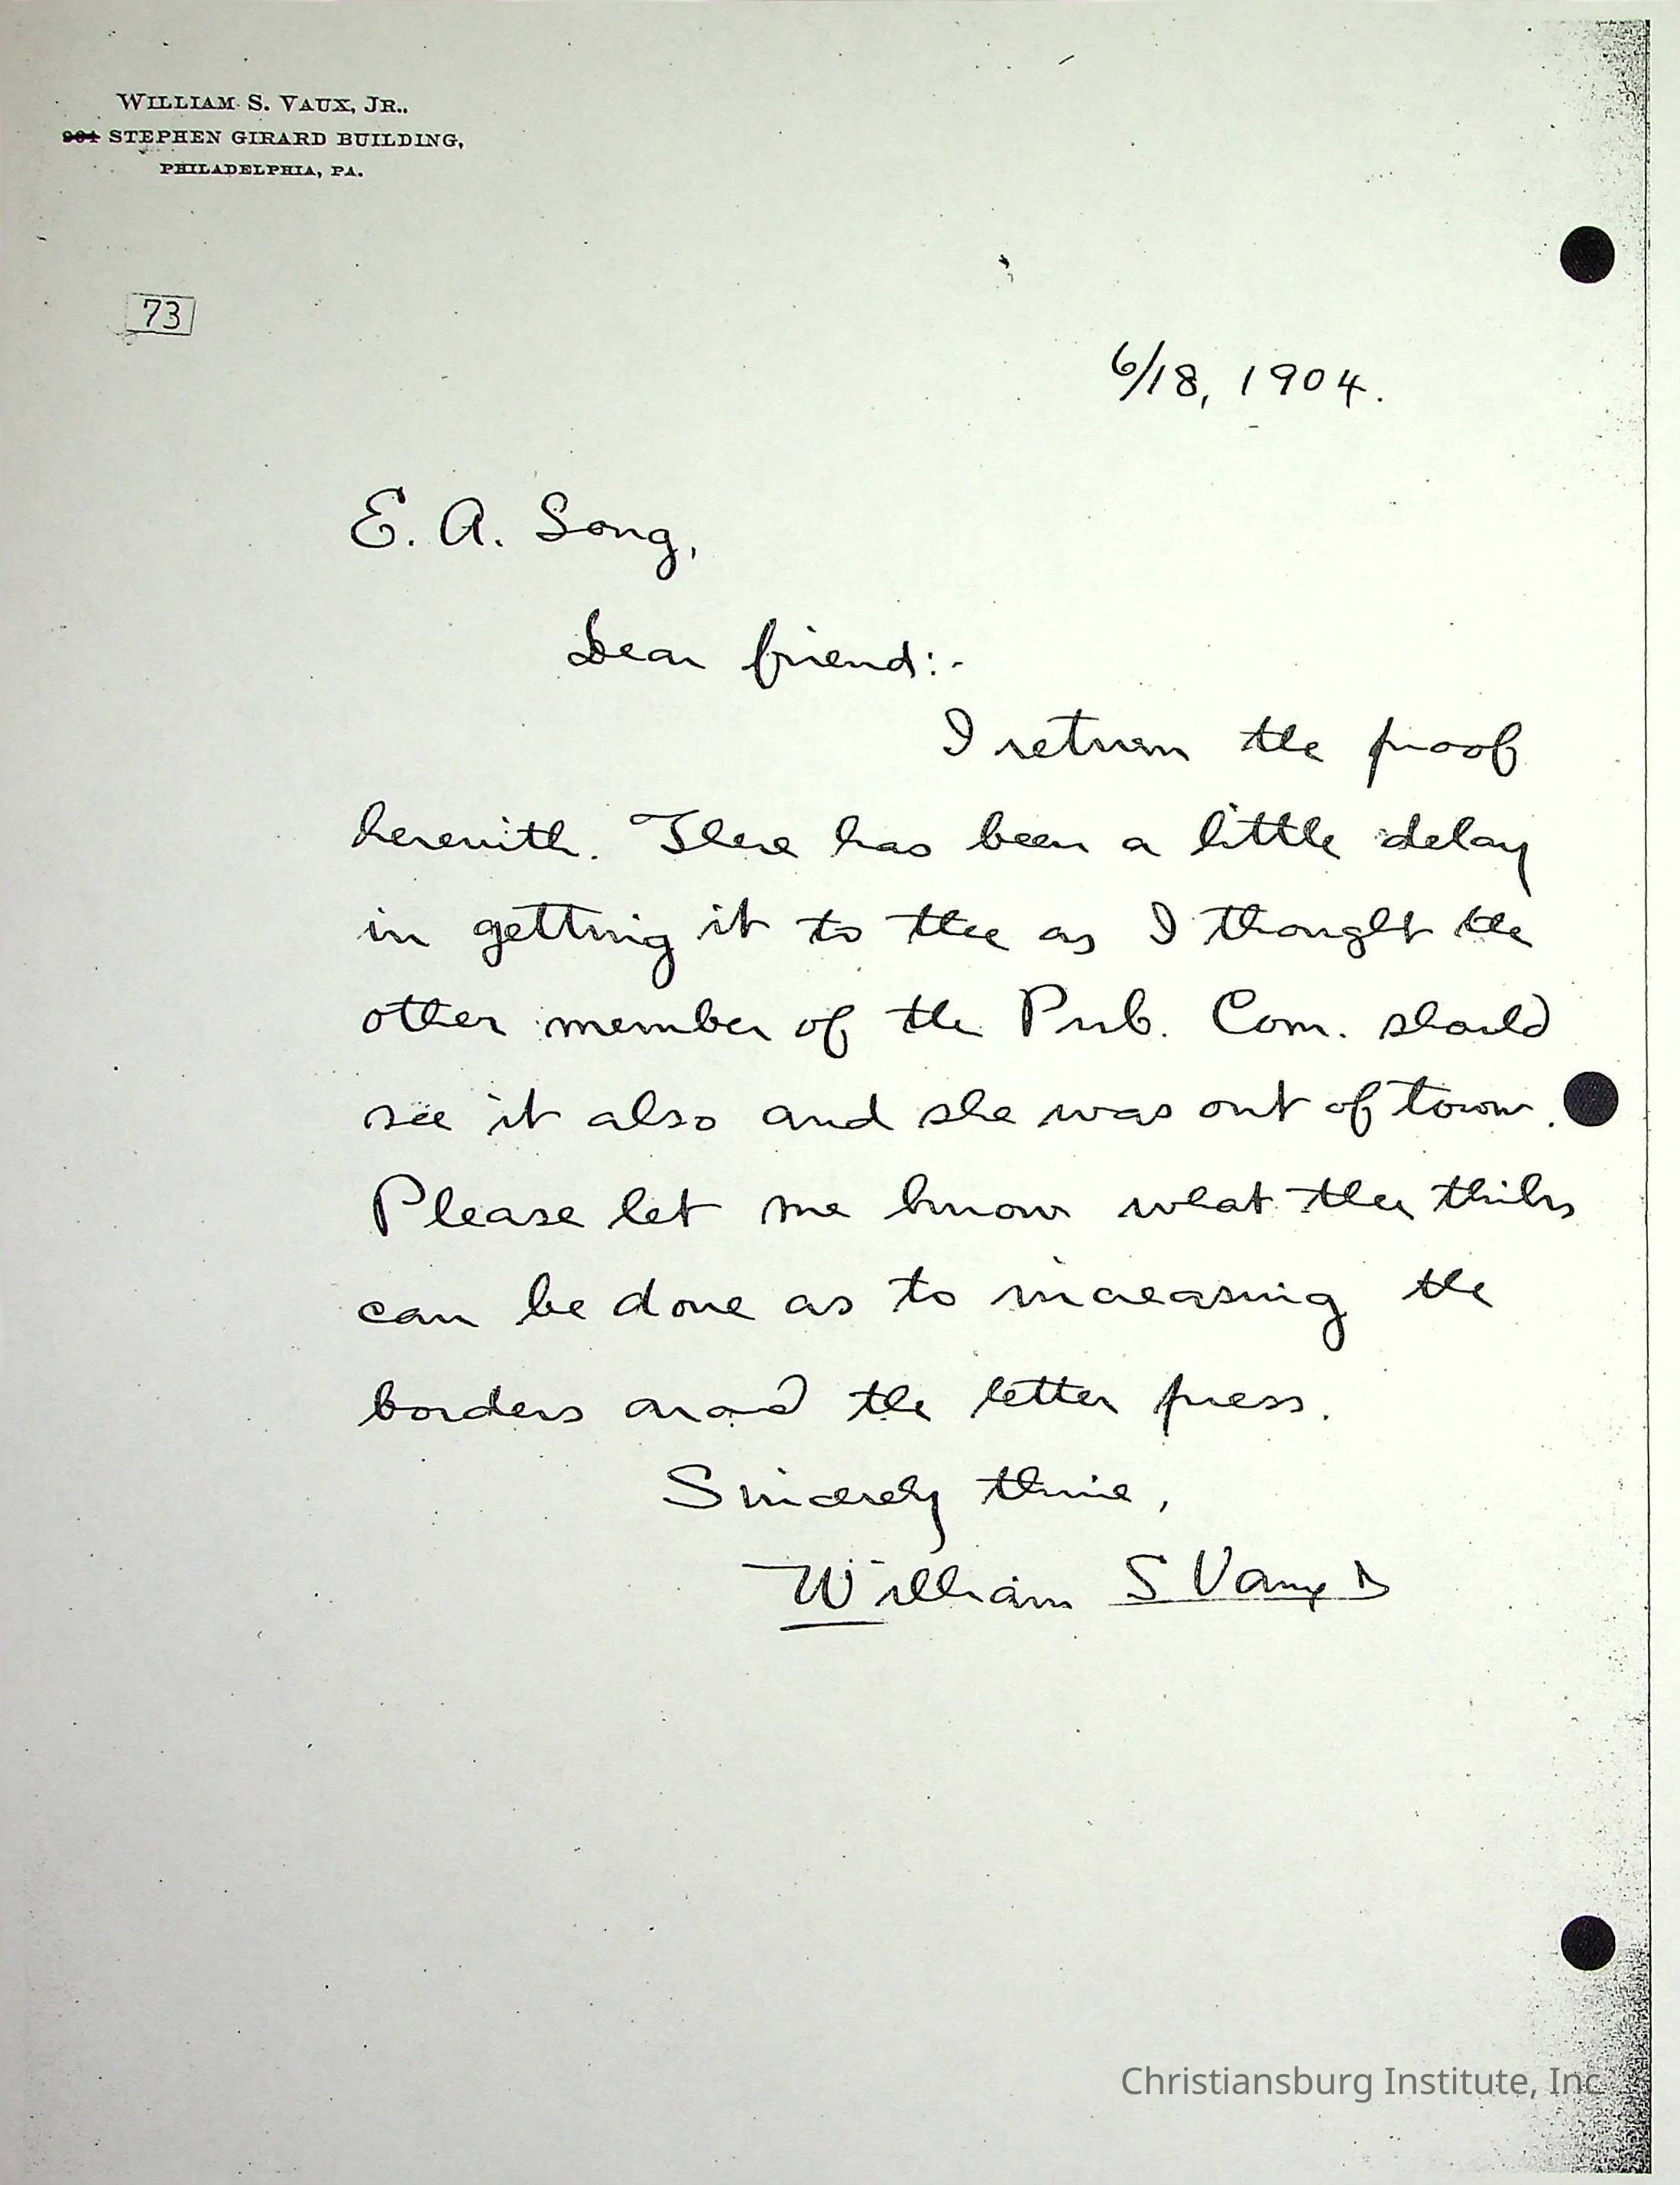 WILLIAM S. VAUX, JR.,
STEPHEN GIRARD BUILDING,
PHILADELPHIA, PA.
73
6/18, 1904.
E. A. Long,
Dear friend:-
I return the proof
herewith. There has been a little delay
in getting it to thee as I thought the
other member of the Pub. Com. should
see it also and she was out of town.
Please let me know what thee thinks
can be done as to increasing the
borders around the letter press.
Sincerely thine,
William S Vaux Jr
Christiansburg Institute, Inc